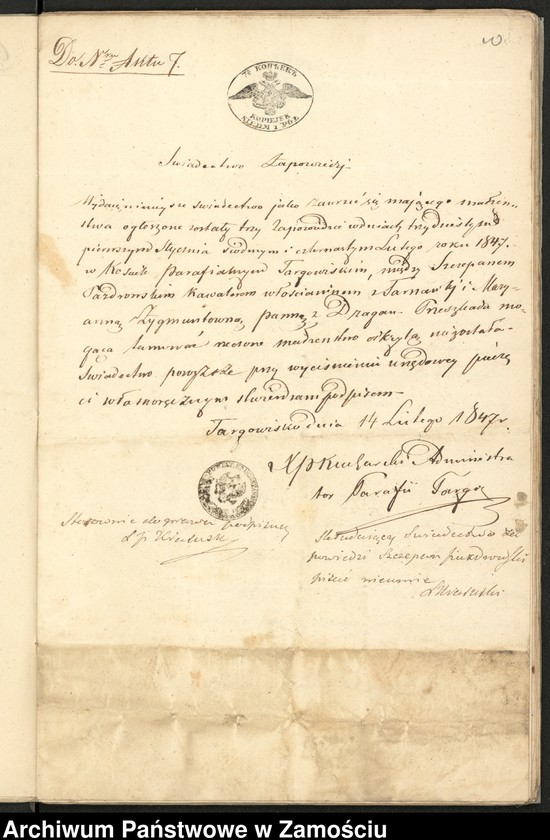 Do Nru Aktu 7.
10.
7½ КОПѢЕКЪ
KOPIEJEK
SIEDM I PÓŁ
Swiadectwo Zapowiedzi
Wydaię niniejsze swiadectwo jako zawrzeć się maiącego małżeń-
stwa ogłoszone zostały trzy zapowiedzi w dniach trzydziestym
pierwszym Stycznia siódmym i czternastym Lutego roku 1847.
w Kościele parafialnym Targowiskim, między Szczepanem
kawalerem włościaninem z Tarnawki i Mary-
anną Zygmuntowną panną z Dragan. Przeszkoda mo-
gąca tamować rzeczone małżeństwo odkrytą nie została-
Swiadectwo powyższe przy wyciśnieniu urzędowej pieczę
ci własnoręcznym stwierdzam podpisem
Targowisko dnia 14 Lutego 1847 r.
X Administra
tor Parafii Targo
Stosownie do prawa podpisuję
Składaiący Swiadectwo Za
powiedzi Szczepan
pisać nieumie
Archiwum Państwowe w Zamościu